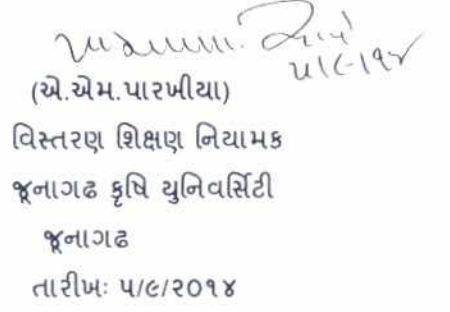 ૫/૯/૧૪
(એ.એમ.પારખીયા)
વિસ્તરણ શિક્ષણ નિયામક
જૂનાગઢ કૃષિ યુનિવર્સિટી
જૂનાગઢ
તારીખઃ ૫/૯/૨૦૧૪